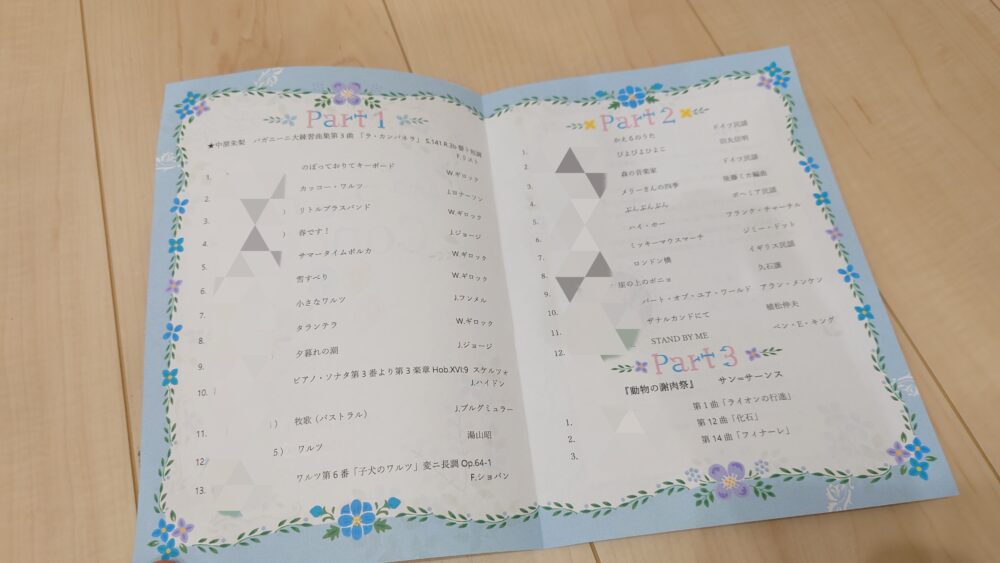 Part 1
★中原朱梨 パガニーニ大練習曲集第3曲 「ラ・カンパネラ」 S.141-R.3b 嬰ト短調
F.リスト
1. のぼっておりてキーボード W.ギロック
2. カッコー・ワルツ J.ロナーソン
3. ) リトルブラスバンド W.ギロック
4. ) 春です! J.ジョージ
5. サマータイムポルカ W.ギロック
6. 雪すべり W.ギロック
7. 小さなワルツ J.フンメル
8. タランテラ W.ギロック
9. 夕暮れの潮 J.ジョージ
10. ピアノ・ソナタ第3番より第3楽章 Hob.XVI:9 スケルツォ
J.ハイドン
11. ) 牧歌(パストラル) J.ブルグミュラー
12 5) ワルツ 湯山昭
13. ワルツ第6番「子犬のワルツ」変ニ長調 Op.64-1
F.ショパン
Part 2
1. かえるのうた ドイツ民謡
2. ぴよぴよひよこ
3. 森の音楽家 ドイツ民謡
4. メリーさんの四季 後藤ミカ編曲
5. ぶんぶんぶん ボヘミア民謡
6. ハイ・ホー フランク・チャーチル
7. ミッキーマウスマーチ ジミー・ドット
8. ロンドン橋 イギリス民謡
9. 崖の上のポニョ 久石譲
10. パート・オブ・ユア・ワールド アラン・メンケン
11. ザナルカンドにて 植松伸夫
12. STAND BY ME ベン・E・キング
Part 3
『動物の謝肉祭』 サン=サーンス
1. 第1曲「ライオンの行進」
2. 第12曲「化石」
3. 第14曲「フィナーレ」